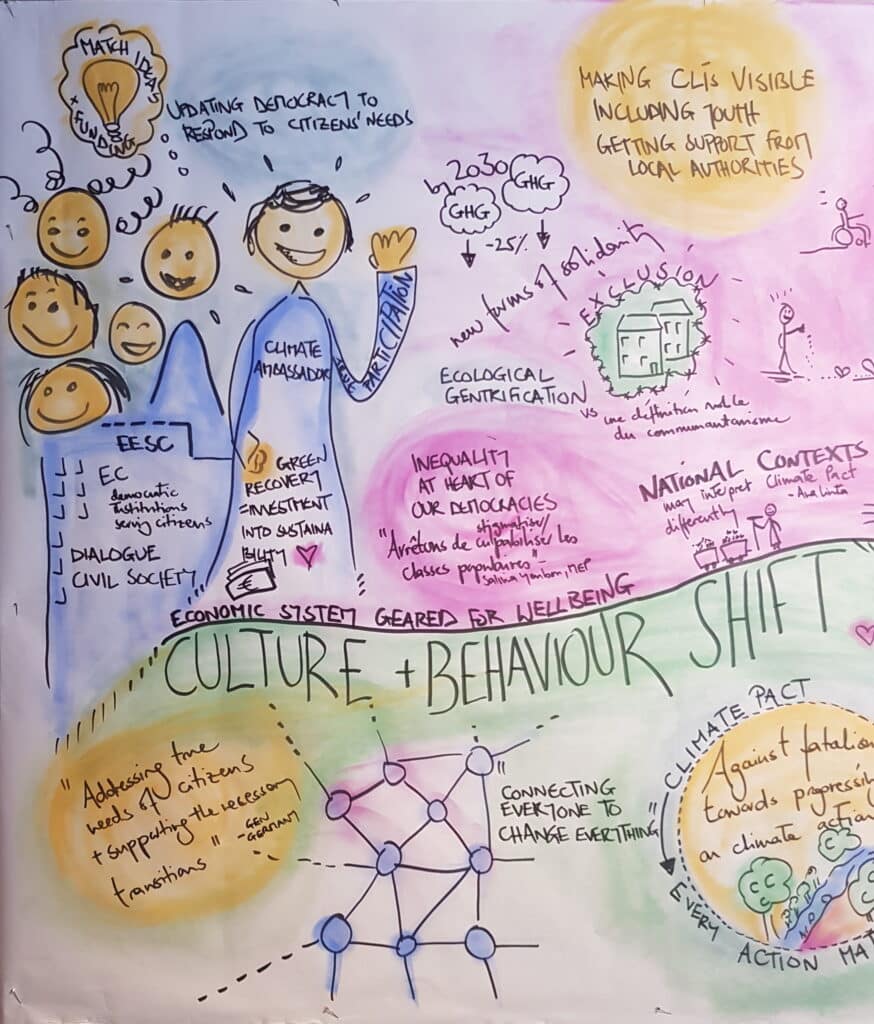 MATCH IDEAS
+ FUNDING
UPDATING DEMOCRACY TO
RESPOND TO CITIZENS' NEEDS
MAKING CLIs VISIBLE
INCLUDING YOUTH
GETTING SUPPORT FROM
LOCAL AUTHORITIES
by 2030
GHG
GHG
-25%
new forms of solidarity
EXCLUSION
ECOLOGICAL
GENTRIFICATION
vs une définition
du communautarisme
CLIMATE
AMBASSADOR
TRUE PARTICIPATION
EESC
EC
democratic
institutions
serving citizens
DIALOGUE
CIVIL SOCIETY
GREEN
RECOVERY
= INVESTMENT
INTO SUSTAINA
BILITY
€
INEQUALITY
AT HEART OF
OUR DEMOCRACIES
stigmatiser/
"Arrêtons de culpabiliser les
classes populaires"
- MEP
NATIONAL CONTEXTS
may interpret Climate Pact
differently
ECONOMIC SYSTEM GEARED FOR WELLBEING
CULTURE + BEHAVIOUR SHIFT
"Addressing true
needs of citizens
+ supporting the necessary
transitions"
- GEN
GERMANY
"CONNECTING
EVERYONE TO
CHANGE EVERYTHING"
CLIMATE PACT
Against fatalis
towards progressi
on climate action
EVERY
ACTION MA